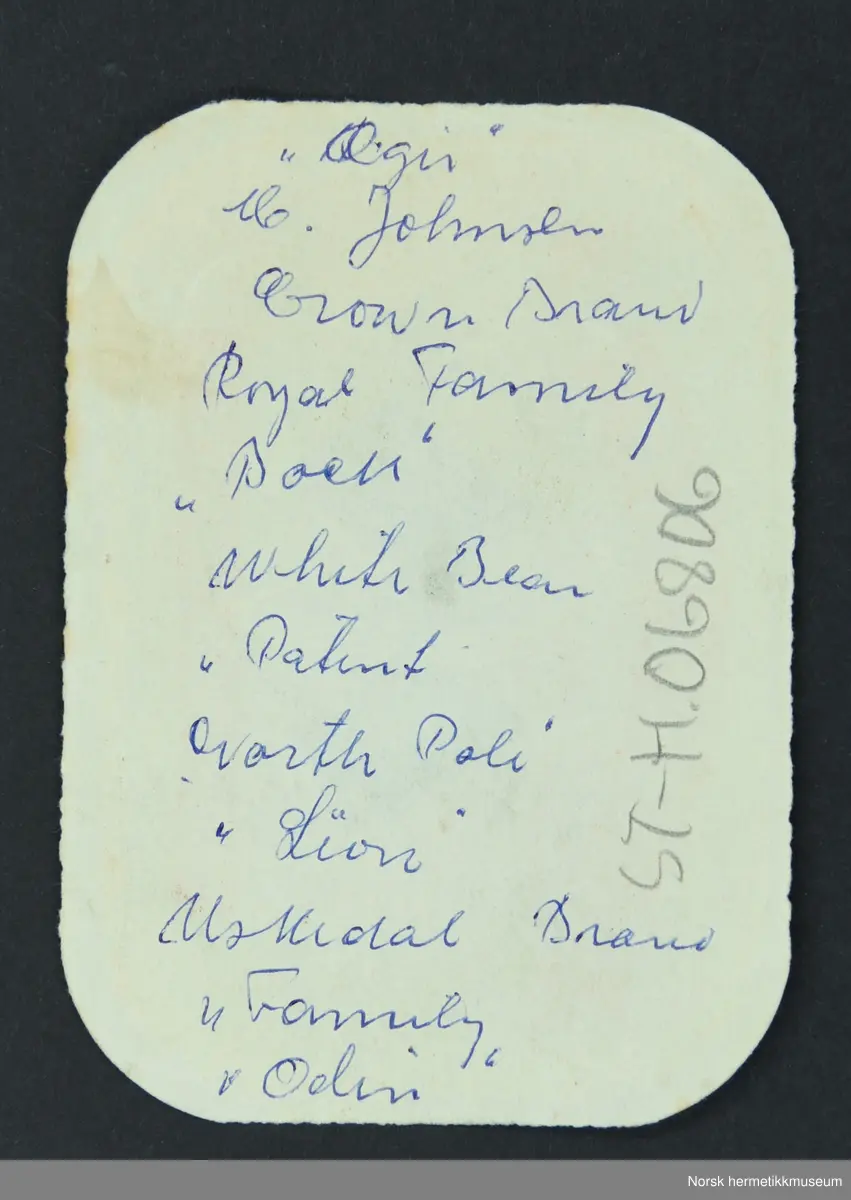 „Ægir“
M. Johnsen
Crown Brand
Royal Family
„Bock“
White Bear
„Patent
North Pole“
„Lion“
Uskedal Brand
„Family“
„Odin“
ST-H.06806
Norsk hermetikkmuseum